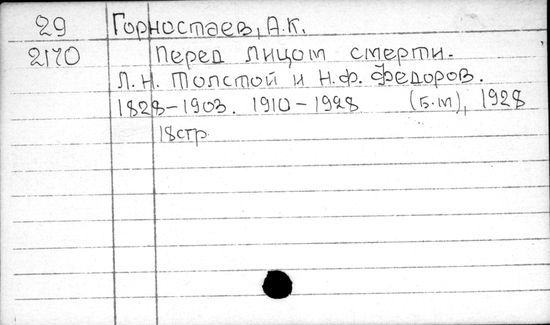 29 Горностаев, А.К.
2170 Перед лицом смерти.
Л.Н. Толстой и Н.Ф. Федоров.
1828-1903. 1910-1928 (б.м), 1928
18стр.